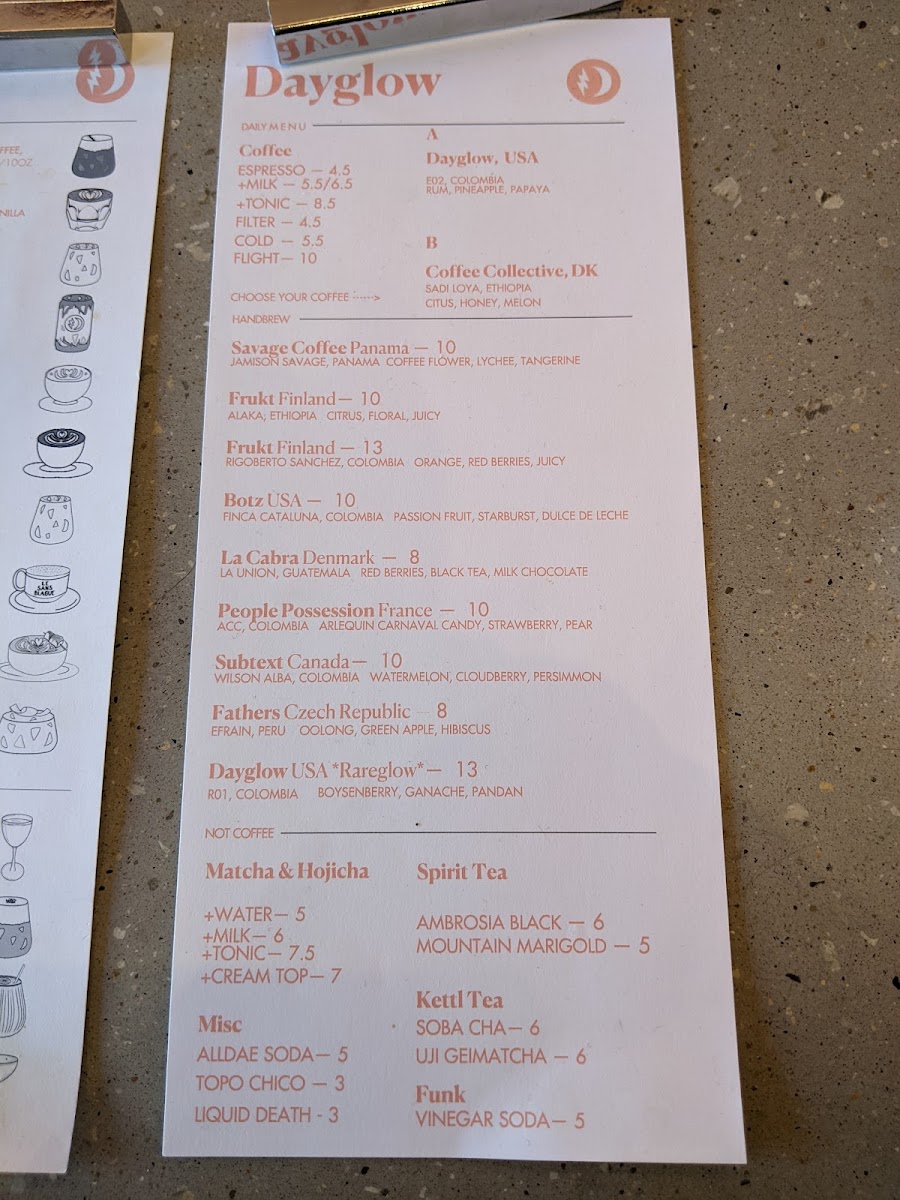 Dayglow
DAILY MENU
Coffee
ESPRESSO — 4.5
+MILK — 5.5/6.5
+TONIC — 8.5
FILTER — 4.5
COLD — 5.5
FLIGHT— 10
CHOOSE YOUR COFFEE ----->
A
Dayglow, USA
E02, COLOMBIA
RUM, PINEAPPLE, PAPAYA
B
Coffee Collective, DK
SADI LOYA, ETHIOPIA
CITUS, HONEY, MELON
HANDBREW
Savage Coffee Panama — 10
JAMISON SAVAGE, PANAMA COFFEE FLOWER, LYCHEE, TANGERINE
Frukt Finland— 10
ALAKA, ETHIOPIA CITRUS, FLORAL, JUICY
Frukt Finland— 13
RIGOBERTO SANCHEZ, COLOMBIA ORANGE, RED BERRIES, JUICY
Botz USA — 10
FINCA CATALUNA, COLOMBIA PASSION FRUIT, STARBURST, DULCE DE LECHE
La Cabra Denmark — 8
LA UNION, GUATEMALA RED BERRIES, BLACK TEA, MILK CHOCOLATE
People Possession France — 10
ACC, COLOMBIA ARLEQUIN CARNAVAL CANDY, STRAWBERRY, PEAR
Subtext Canada— 10
WILSON ALBA, COLOMBIA WATERMELON, CLOUDBERRY, PERSIMMON
Fathers Czech Republic — 8
EFRAIN, PERU OOLONG, GREEN APPLE, HIBISCUS
Dayglow USA *Rareglow*— 13
R01, COLOMBIA BOYSENBERRY, GANACHE, PANDAN
NOT COFFEE
Matcha & Hojicha
+WATER— 5
+MILK— 6
+TONIC— 7.5
+CREAM TOP— 7
Misc
ALLDAE SODA— 5
TOPO CHICO — 3
LIQUID DEATH - 3
Spirit Tea
AMBROSIA BLACK — 6
MOUNTAIN MARIGOLD — 5
Kettl Tea
SOBA CHA— 6
UJI GEIMATCHA — 6
Funk
VINEGAR SODA— 5
/10OZ
LE
SANS
BLAGUE